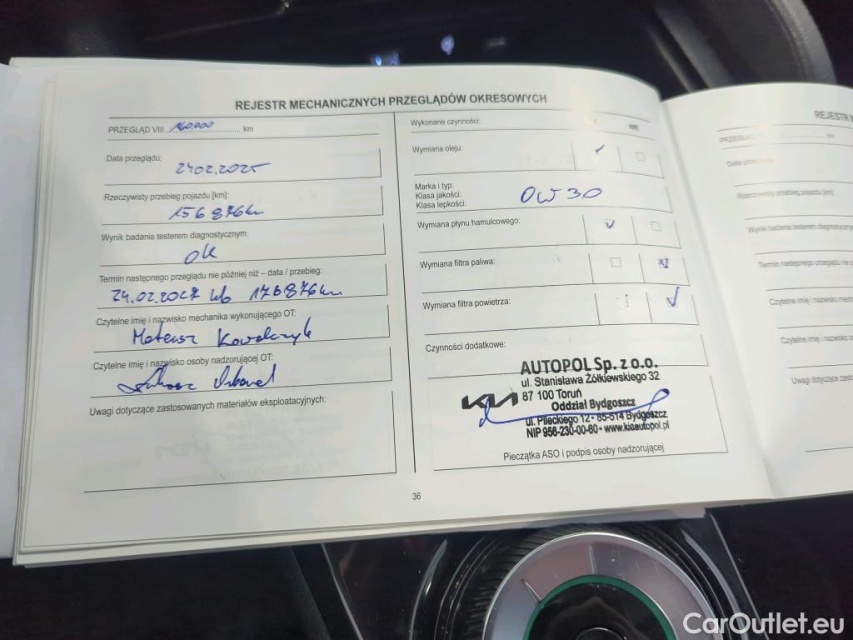 REJESTR MECHANICZNYCH PRZEGLĄDÓW OKRESOWYCH
PRZEGLĄD VIII 160.000 km
Data przeglądu:
24.02.2025
Rzeczywisty przebieg pojazdu [km]:
156876km
Wynik badania testerem diagnostycznym:
ok
Termin następnego przeglądu nie później niż – data / przebieg:
24.02.2027 lub 176876km
Czytelne imię i nazwisko mechanika wykonującego OT:
Mateusz Kowalczyk
Czytelne imię i nazwisko osoby nadzorującej OT:
Łukasz
Uwagi dotyczące zastosowanych materiałów eksploatacyjnych:
Wykonane czynności:
NIE
Wymiana oleju:
Marka i typ:
Klasa jakości:
Klasa lepkości:
0W30
Wymiana płynu hamulcowego:
Wymiana filtra paliwa:
Wymiana filtra powietrza:
Czynności dodatkowe:
AUTOPOL Sp. z o.o.
ul. Stanisława Żółkiewskiego 32
87 100 Toruń
Oddział Bydgoszcz
ul. Pileckiego 12 • 85-514 Bydgoszcz
NIP 956-230-00-60 • www.kiaautopol.pl
KIA
Pieczątka ASO i podpis osoby nadzorującej
36
REJESTR M
PRZEGLĄD
Data przeglądu:
Rzeczywisty przebieg pojazdu [km]:
Wynik badania testerem diagn
Termin następnego przeglądu
Czytelne imię i nazwisko
Czytelne imię i
Uwagi dotyc
CarOutlet.eu